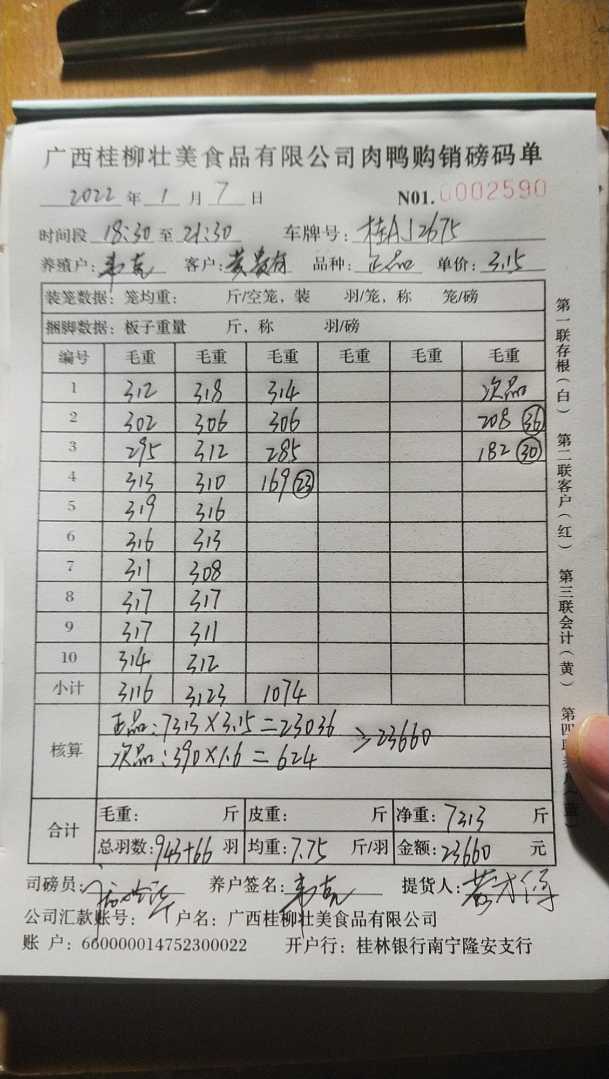 广西桂柳壮美食品有限公司肉鸭购销磅码单
2022 年 1 月 7 日 N01. 0002590
时间段 18:30 至 21:30 车牌号: 桂AJ2675
养殖户: 韦克 客户: 品种: 正品 单价: 3.15
装笼数据: 笼均重: 斤/空笼, 装 羽/笼, 称 笼/磅
捆脚数据: 板子重量 斤, 称 羽/磅
编号 毛重 毛重 毛重 毛重 毛重 毛重
1 312 318 314 次品
2 302 306 306 208 36
3 295 312 285 182 30
4 313 310 169 23
5 319 316
6 316 313
7 311 308
8 317 317
9 317 311
10 314 312
小计 3116 3123 1074
核算
正品:7313×3.15=23036
次品:390×1.6=624
>23660
合计
毛重: 斤 皮重: 斤 净重: 7313 斤
总羽数: 943+66 羽 均重: 7.75 斤/羽 金额: 23660 元
司磅员: 养户签名: 韦克 提货人:
公司汇款账号: 户名: 广西桂柳壮美食品有限公司
账 户: 660000014752300022 开户行: 桂林银行南宁隆安支行
第一联存根(白) 第二联客户(红) 第三联会计(黄) 第四联